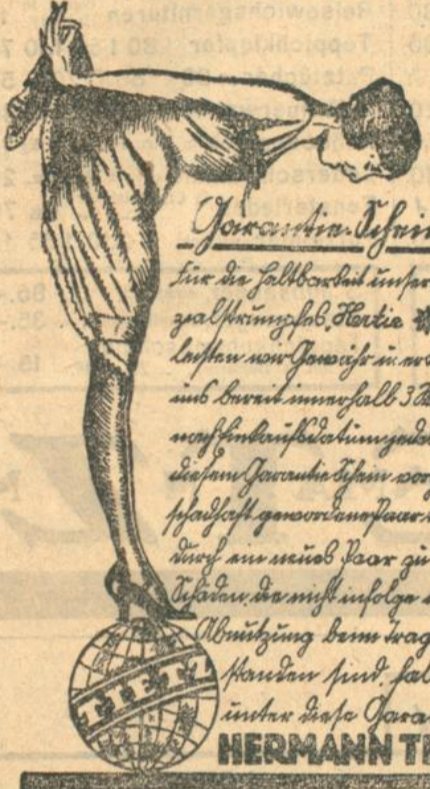 Garantie-Schein
Für die Haltbarkeit unser
zialstrumpfes „Hertie
leisten wir Gewähr
uns bereit innerhalb 3
nach Einkaufsdatum jedes
diesem Garantie Schein vor
schadhaft gewordene Paar
durch ein neues Paar zu
Schäden, die nicht infolge
Abnützung beim Trag
standen sind, fal
unter diese Gara
TIETZ
HERMANN TI